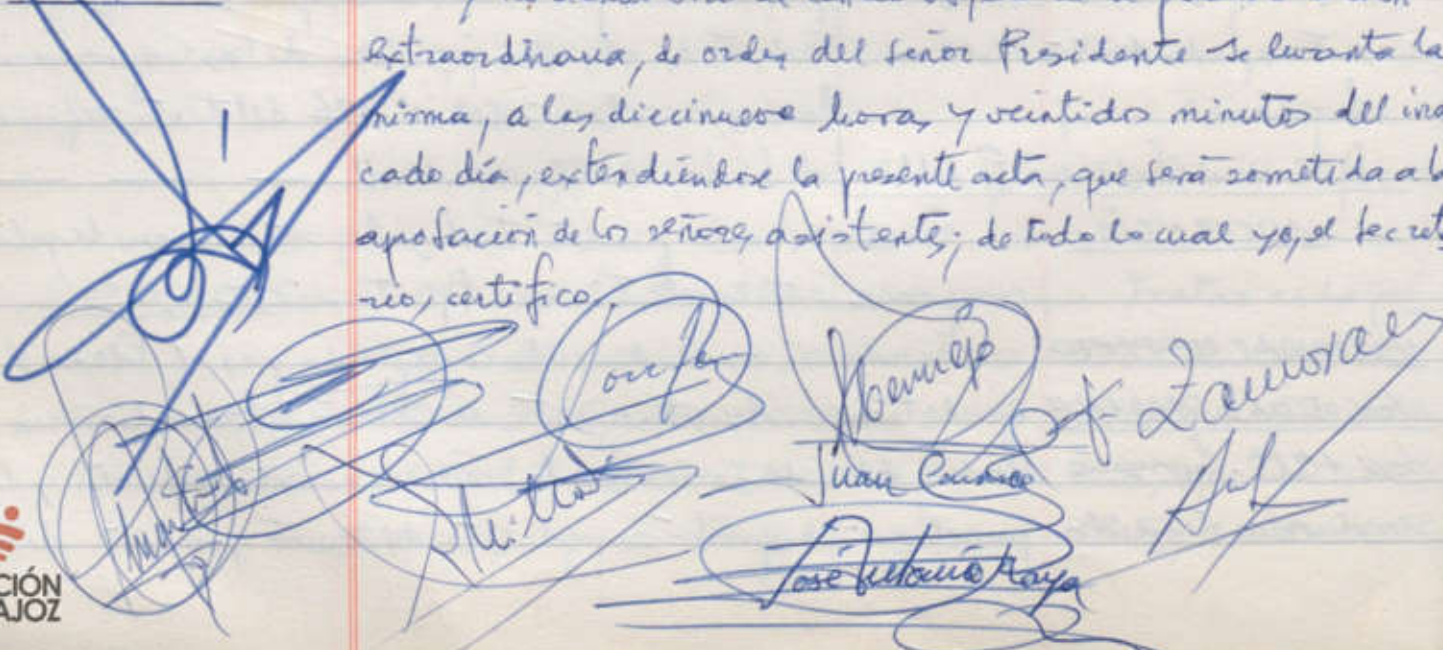 extraordinaria, de orden del señor Presidente se levanta la
misma, a las diecinueve horas y veintidos minutos del ind
cado día, extendiéndose la presente acta, que será sometida a l
aprobación de los señores asistentes; de todo lo cual yo, el secret
rio, certifico.
Bermejo
F Zamorano
Juan
José Antonio Raya
CIÓN
AJOZ